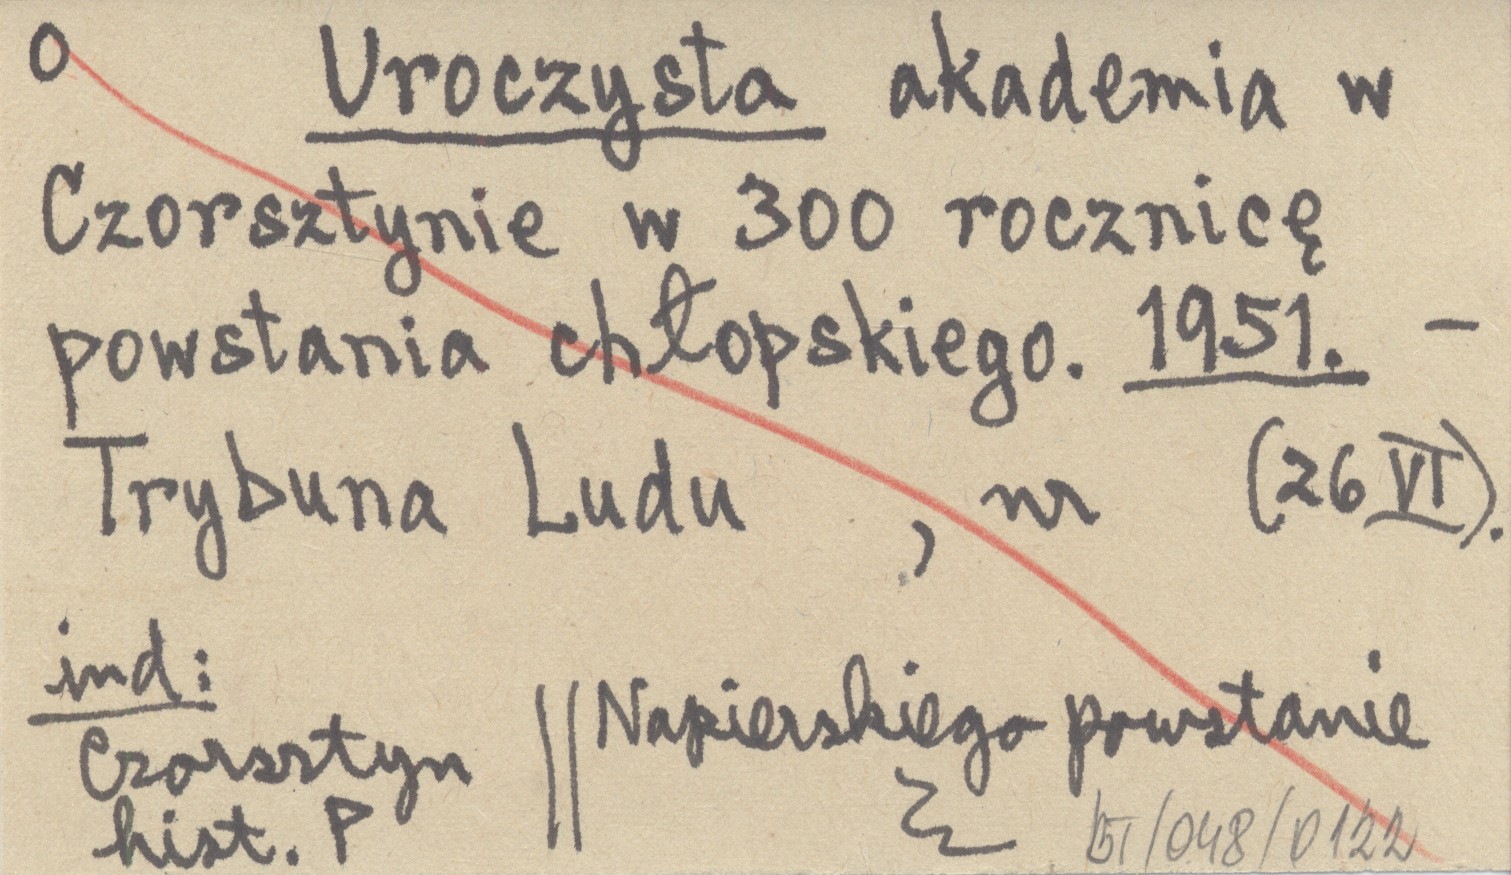 O Uroczysta akademia w
Czorsztynie w 300 rocznicę
powstania chłopskiego. 1951. –
Trybuna Ludu , nr (26 VI).
ind:
Czorsztyn || Napierskiego powstanie
hist. P
/048/0122